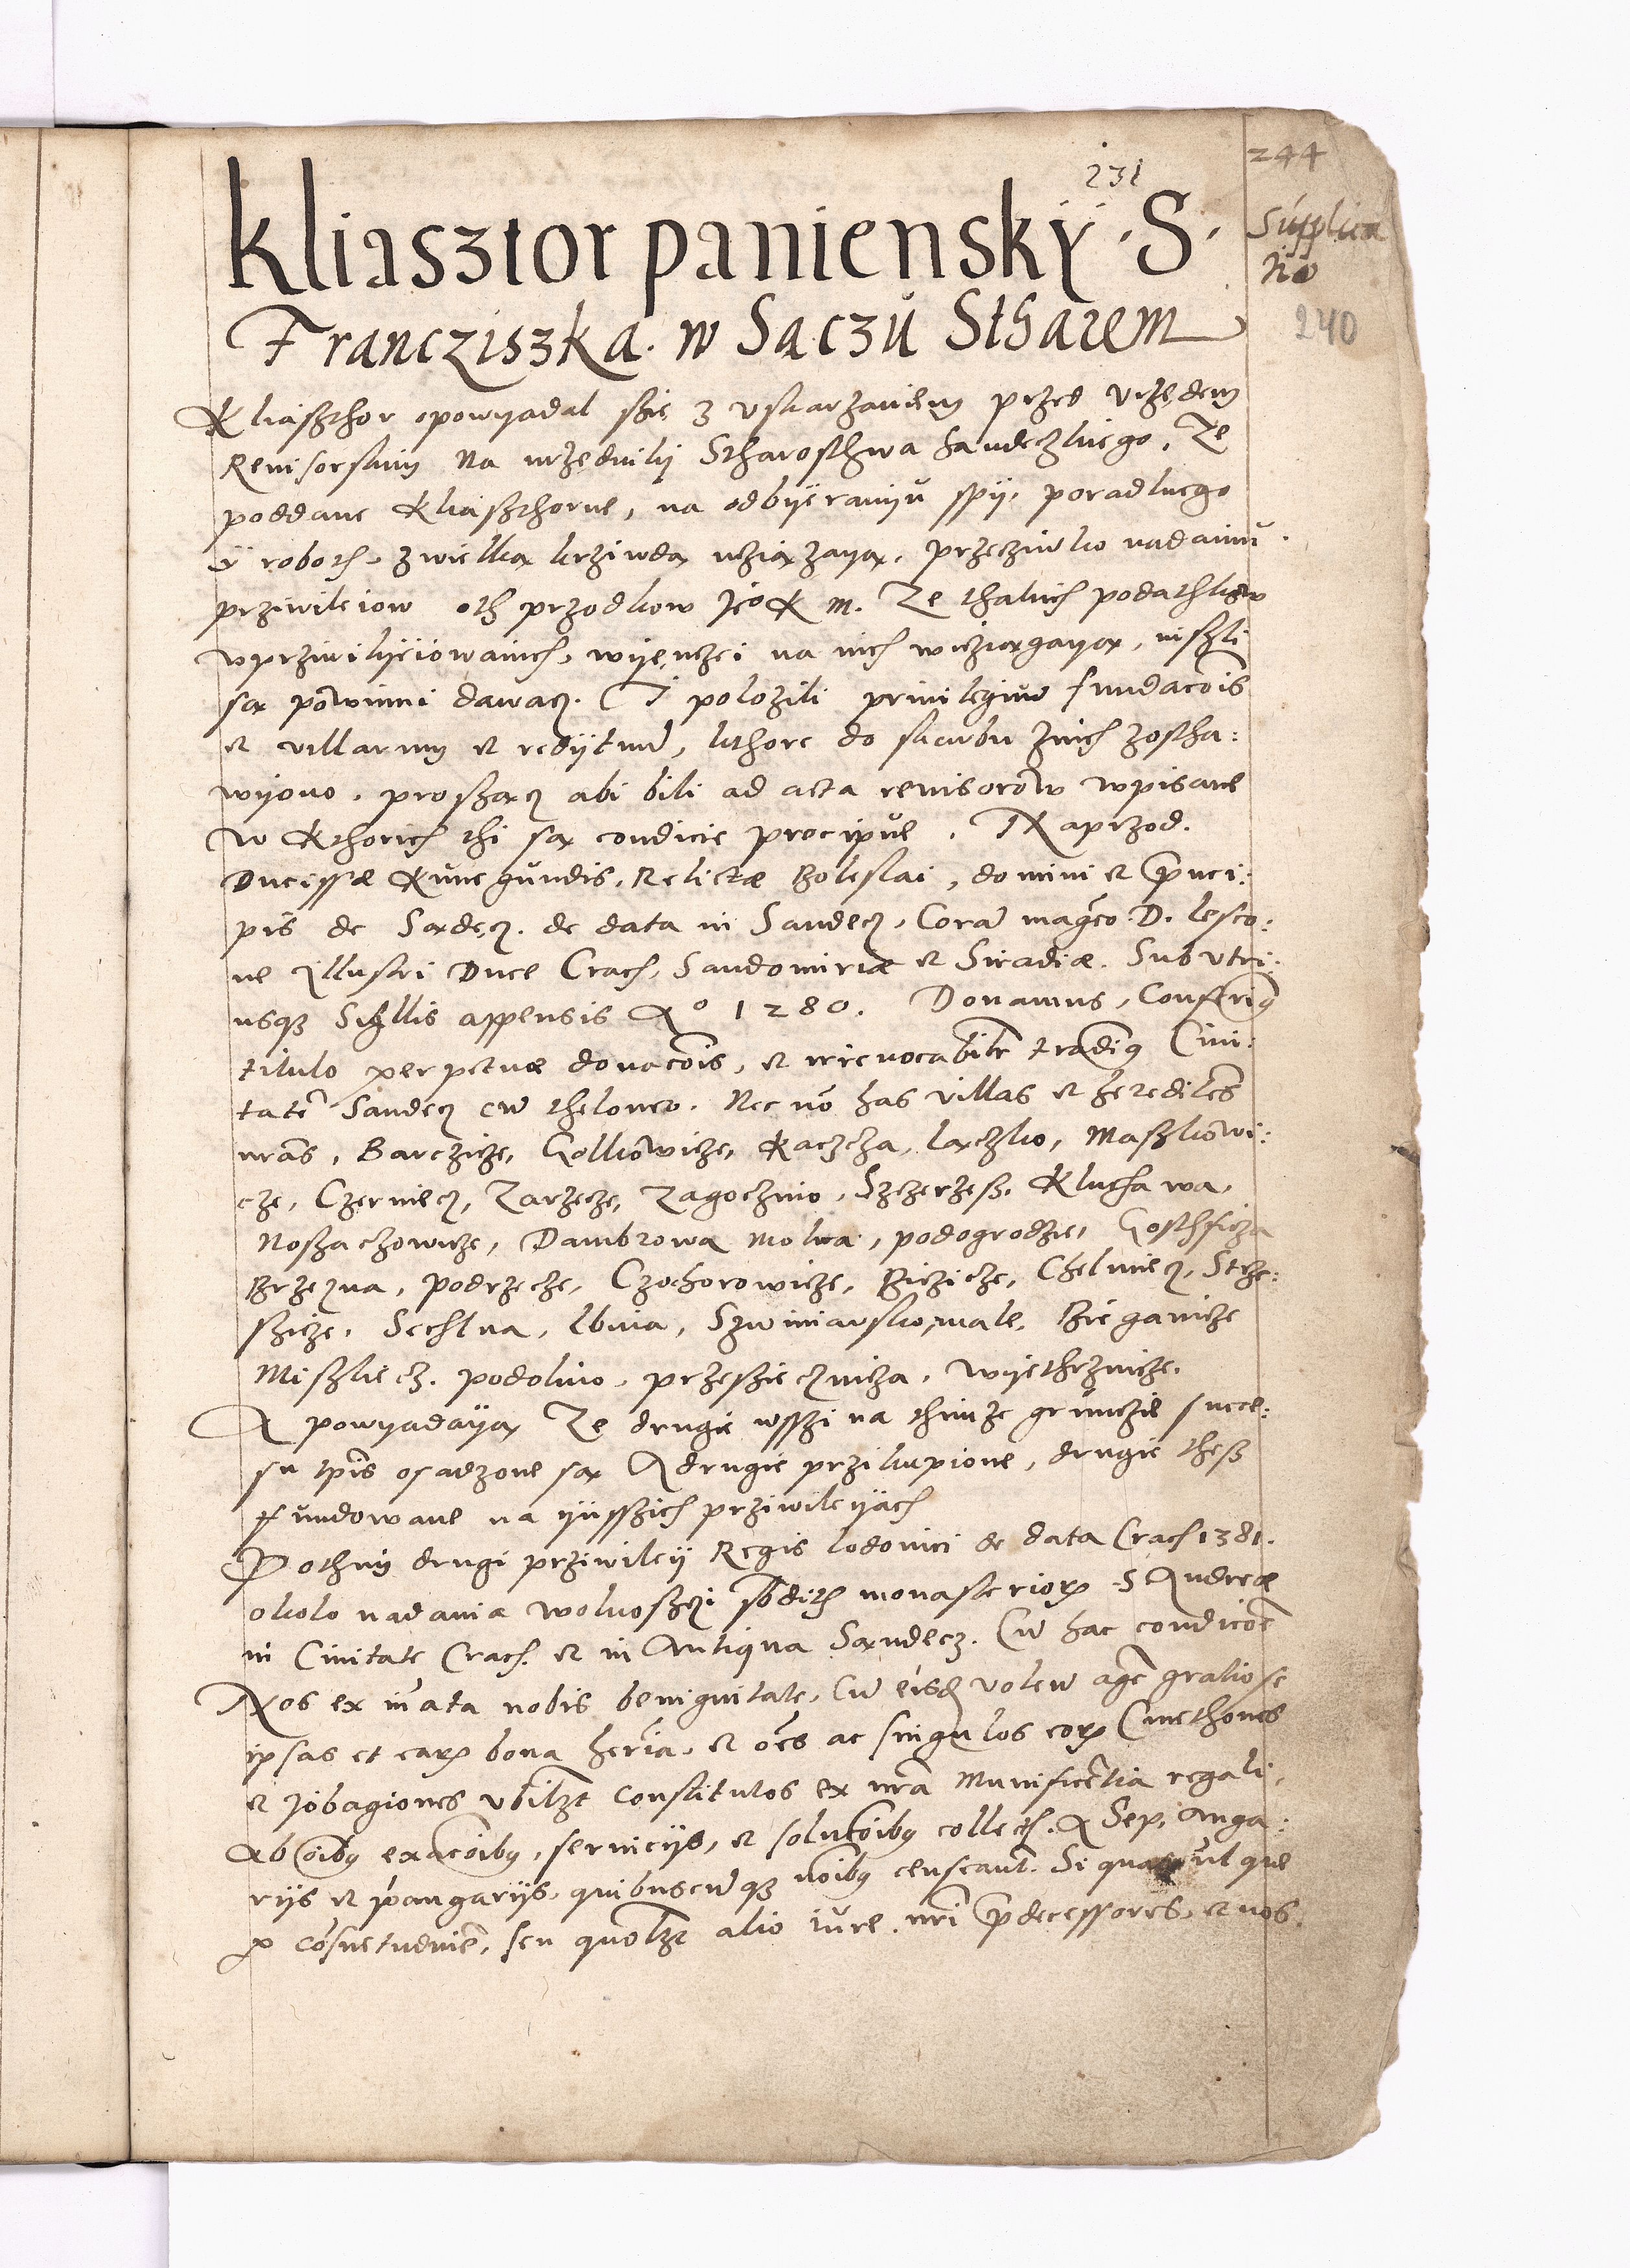 231
244
Supplica
tio
240
Kliasztor panienskÿ · S ·
Francziszka. w Sączŭ Stharem
Kliaszthor opowyadal szie z vskarzaniem przed vrzędem
Revisorskim Na vrzedniky Stharosthwa Sandeczkiego, Ze
poddane Kliaszthorne, na odbÿeranyŭ spÿ, poradlnego
ÿ roboth, z wielką krziwdą ucziązayą, przecziwko nadaniu
prziwileiow oth przodkow Jeº K M. Ze thakich podathkow
w prziwilyeiowanich, wiÿenczei na nich wicziągayą, niszli
są powinni dawacz. I polozili privilegium fundacōis
et villarum et redÿtuum, kthore do skarbu znich zostha:
wiyono, proszącz abi bili ad acta revisorow wpisane
w Kthorich thi są condicie precipue. Naprzod.
Ducissæ Kunegŭndis, Relictæ Boleslai, domini et p̄nci:
pis de Sądecz. de data in Sandecz, Coram magco D. lesco:
ne Illustri Duce Crach, Sandomiriæ et Siradiæ. Sub vtri:
usqʒ Sigillis appensis Aº 1280. Donamus, Conferimꝯ
titulo perpetuæ donacōis, et irrevocabilr tradimꝯ Civi:
tatē Sandecz cū theloneo. Nec nō has villas et heredites
nrās, Barczicze, Golkowicze, Kaczcza, lączko, Maszkowi:
cze, Czerniecz, Zarzecze, Zagoczino, Szczerzesz, Kluchawa,
Noszaczowicze, Dambrowa Molna, podogrodzie, Gosthficza
Brzezna, podrzecze, Czochorowicze, Biczicze, Chelmiecz, Strze:
szicze, Sechlna, Ibnia, Szwiniarsko, male, Bieganicze
Miszliecz, podolino, przesziecznicza, Wyethrznicze.
A powyadaÿą Ze drugie wsszi na thimze grŭnczie succe:
su tpis osadzone są A drugie prziKupione, drugie thesz
fundowane na ÿnsszich prziwileÿach
Pothim drugi prziwileÿ Regis lodovici de data Crach 1381.
okolo nadania wolnosczi sbdith monasteriorꝝ S Andreæ
in Civitate Crach. et in Antiqua Sandecz. Cū hac condicōe
Nos ex innata nobis benignitate, Cū eisdem volen agē gratiose
ipsas et earꝝ bona heria, et oēs ac singulos eorꝝ Cmethones
et Jobagiones vbilzt Constitutos ex nrā Munificētia regali,
Ab oībꝯ exacōibꝯ, serviciÿs, et solucōibꝯ collectis. A Sep. Anga:
riÿs et pangariÿs, quibuscūqʒ noībꝯ censeant. Si quas vl que
ꝑ cōsuetudinē, seu quolzt alio iure. nrī p̄decessores, et nos.